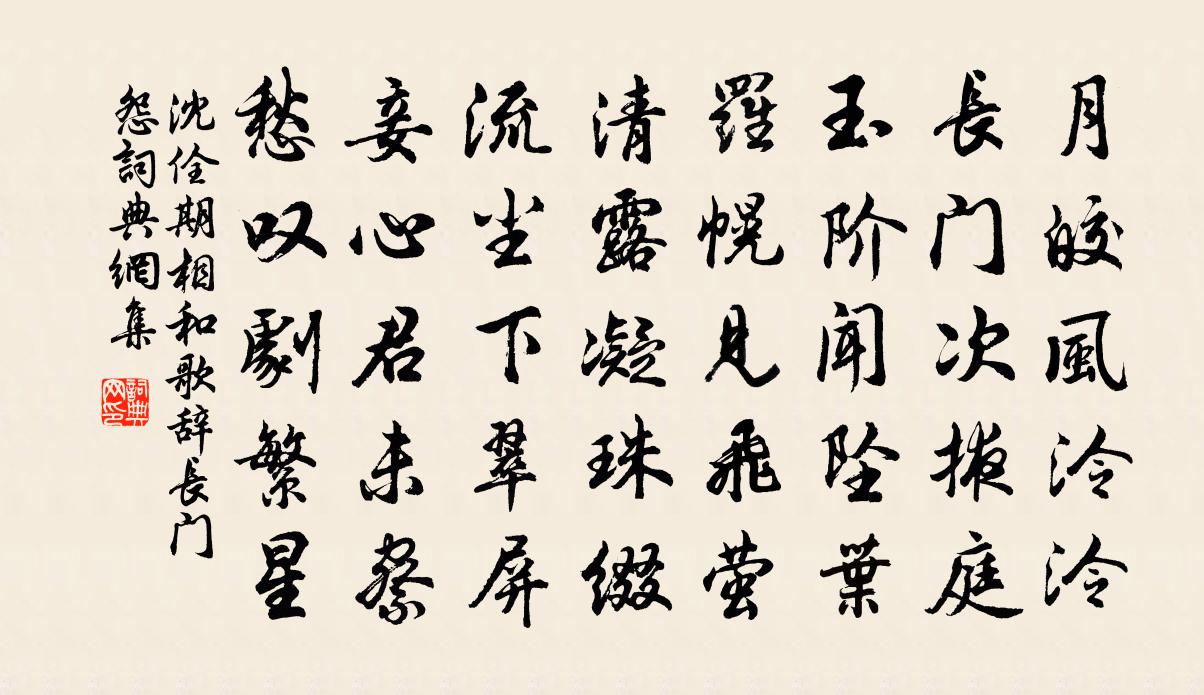 月皎風泠泠
長门次掖庭
玉阶闻坠葉
羅幌見飛萤
清露凝珠缀
流尘下翠屏
妾心君未察
愁叹劇繁星
沈佺期相和歌辞長门
怨詞典網集
詞典
网印